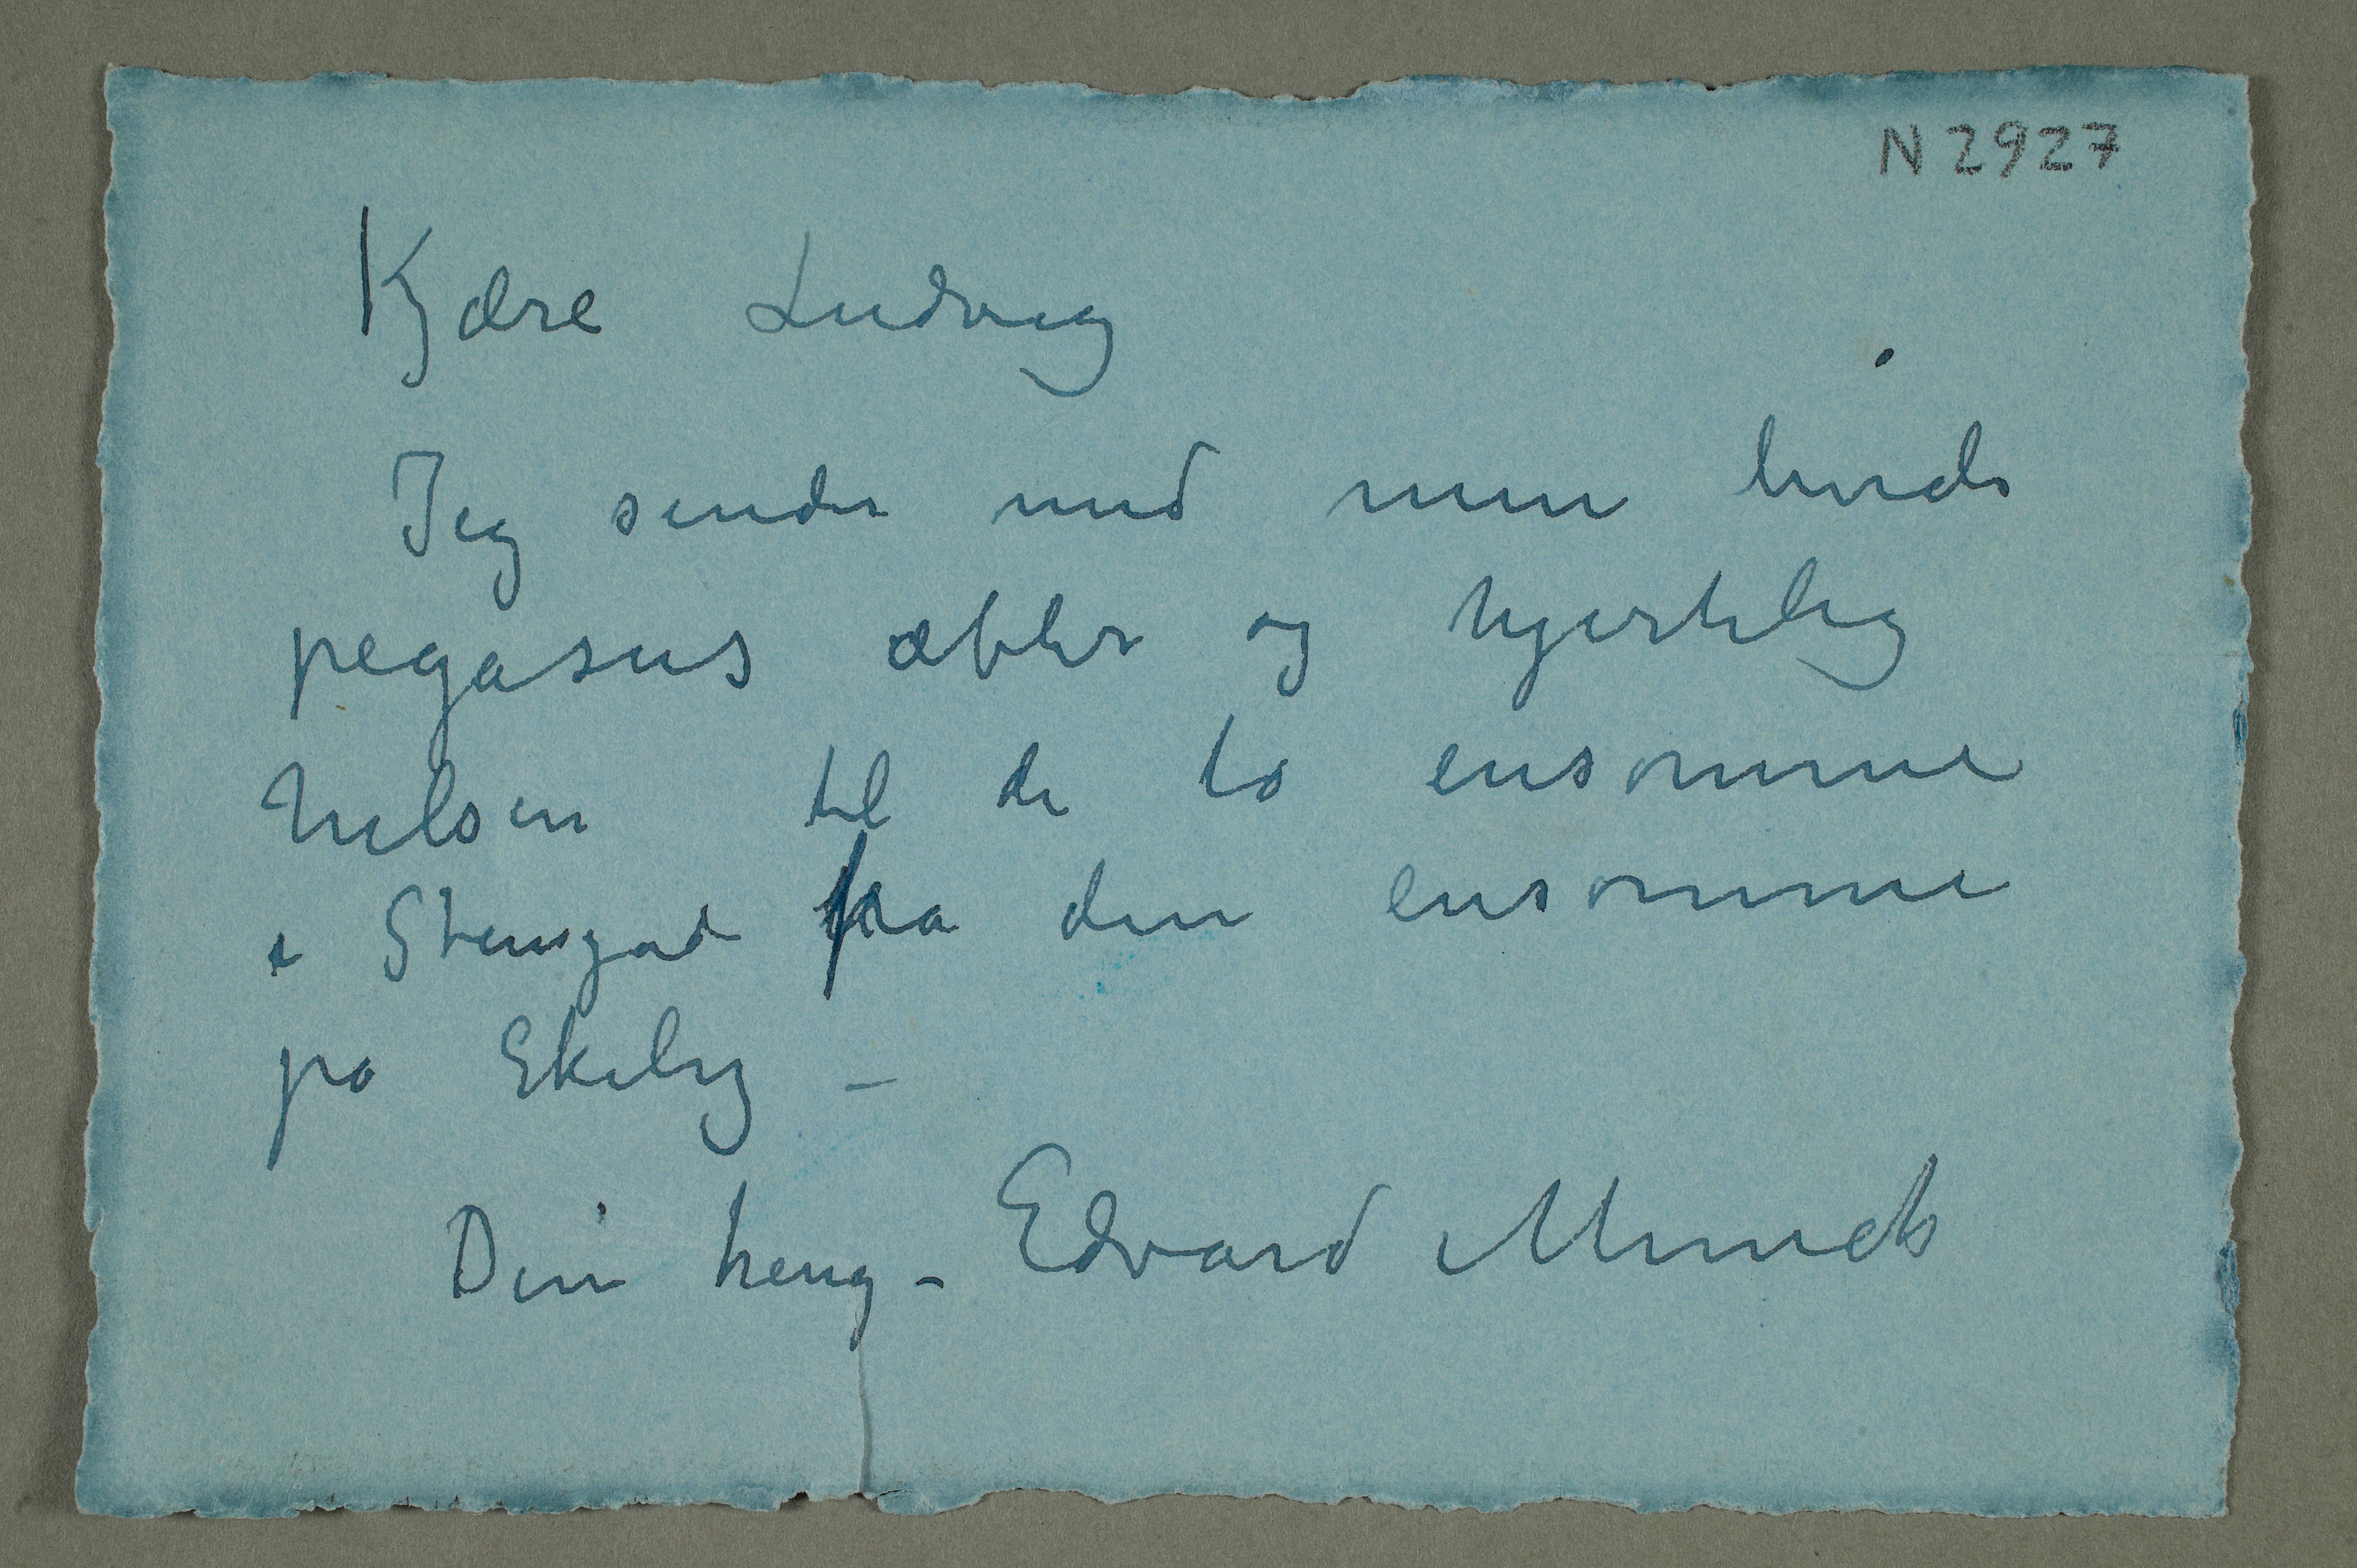 N 2927
Kjære Ludvig
Jeg sender med min hvide
pegasus æbler og hjertelig
hilsen til de to ensomme
i Stengad fra den ensomme
på Ekely –
Din heng– Edvard Munch